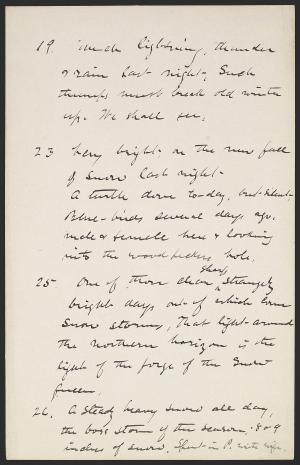 19. Much lightning, thunder
& rain last night; Such
thumps must break old winter
up. We shall see.
23 Very bright, on the new fall
of snow last night.
A turtle dove to-day, but silent.
Blue-birds several days ago,
male & female here & looking
into the woodpeckers hole.
25. One of those clear sharp strangely
bright days out of which come
Snow storms, That light around
the northern horizon is the
light of the forge of the Snow
Queen.
26. A Steady heavy snow all day,
the boss storm of the season. 8 or 9
inches of snow. Spent in P. with wife.